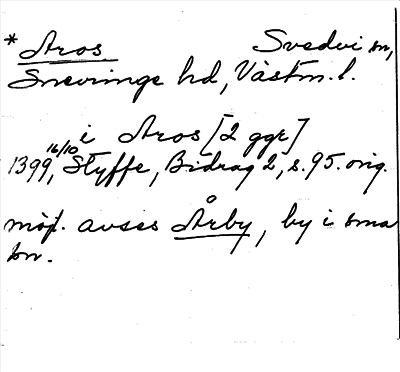 * Aros Svedvi sn,
Snevringe hd, Västm. l.
i Aros [2 ggr]
1399 16/10, Styffe, Bidrag 2, s. 95. orig.
möjl. avses Åby, by i sma
sn.